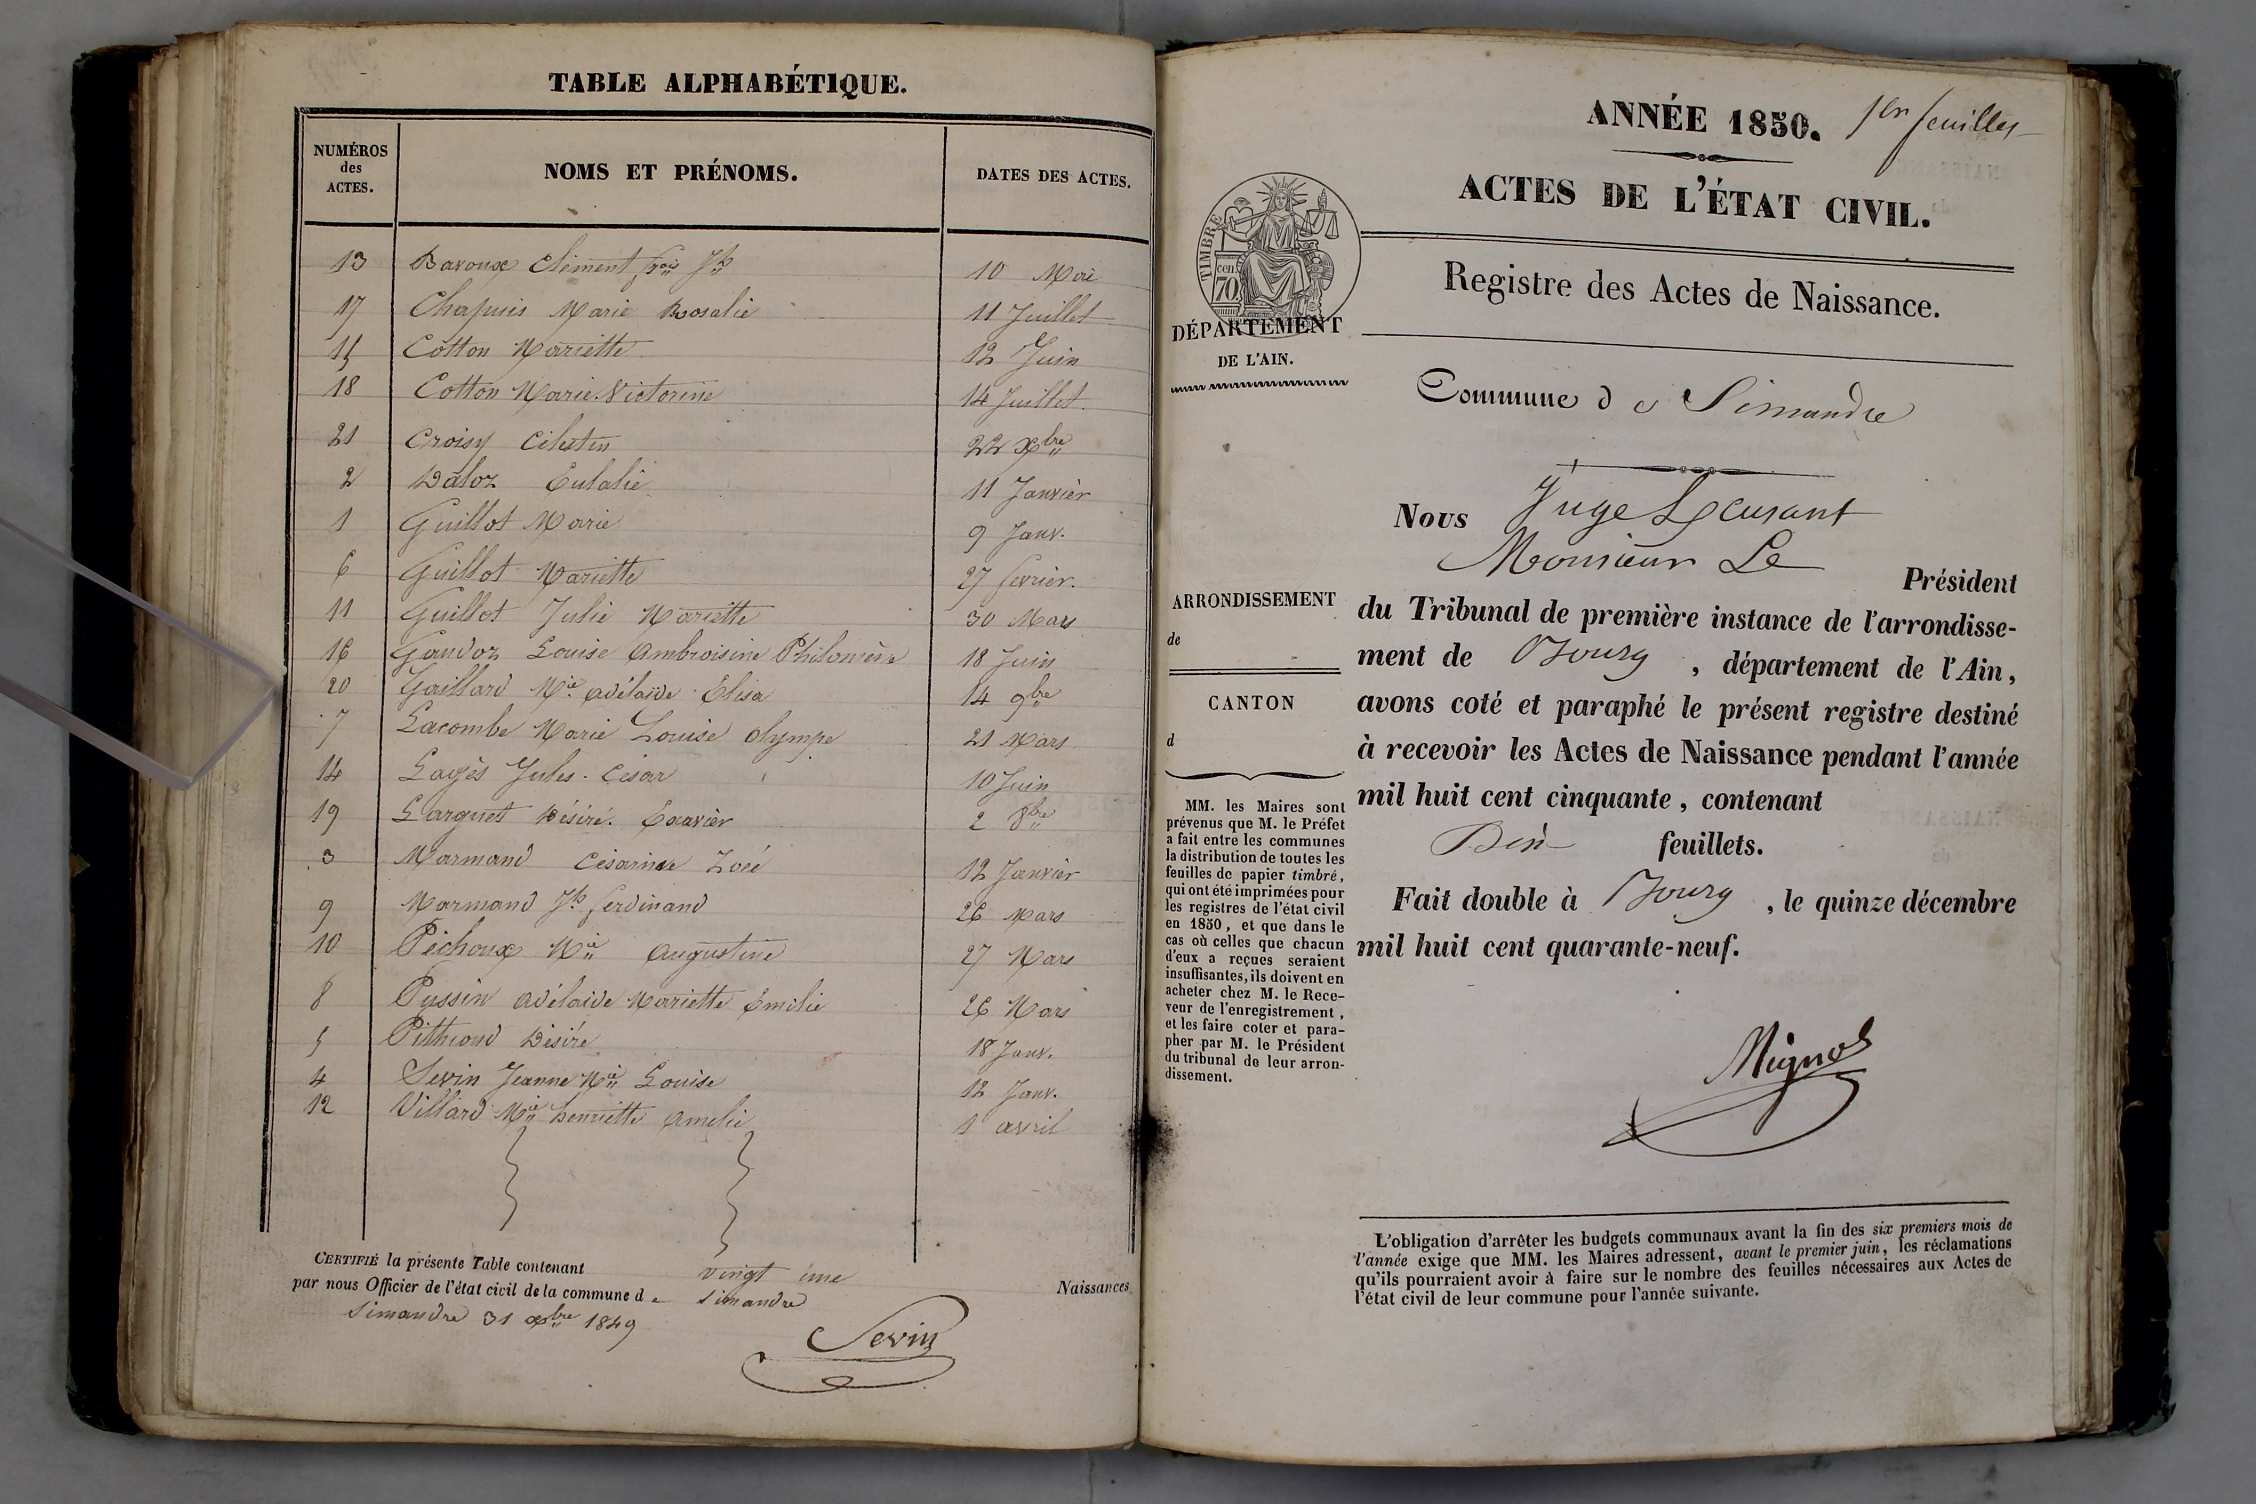 TABLE ALPHABÉTIQUE.
NUMÉROS des ACTES. NOMS ET PRÉNOMS. DATES DES ACTES.
13 Bavoux Clément frois Jh 10 Mai
17 Chapuis Marie Rosalie 11 Juillet
15 Cotton Mariette 12 Juin
18 Cotton Marie Victorine 14 Juillet
21 Croisy Célestin 22 xbre
2 Daloz Eulalie 11 Janvier
1 Guillot Marie 9 Janv.
6 Guillot Mariette 27 février.
11 Guillot Julie Mariette 30 Mars
16 Gandoz Louise Ambroisine Philomène 18 Juin
20 Gaillard Mie adélaïde Élisa 14 9bre
7 Lacombe Marie Louise olympe 21 Mars
14 Layès Jules César 10 Juin
19 Larguet Désiré. 2 8bre
3 Marmand Césarine Zoé 12 Janvier
9 Marmand Jh ferdinand 26 Mars
10 Péchoux Mie augustine 27 Mars
8 Pussin adélaïde Mariette Émilie 26 Mars
5 Pithioud Désiré 18 Janv.
4 Sevin Jeanne Mie Louise 12 Janv.
12 Villard Mie henriette amélie 1 avril
CERTIFIÉ la présente Table contenant vingt une Naissances
par nous Officier de l'état civil de la commune de Simandre
Simandre 31 xbre 1849
Sevin
ANNÉE 1850. 1er feuillet
ACTES DE L'ÉTAT CIVIL.
Registre des Actes de Naissance.
TIMBRE
cen.
70
DÉPARTEMENT
DE L'AIN.
Commune de Simandre
Nous Juge
Monsieur Le
Président
du Tribunal de première instance de l'arrondisse-
ment de Bourg, département de l'Ain,
avons coté et paraphé le présent registre destiné
à recevoir les Actes de Naissance pendant l'année
mil huit cent cinquante, contenant
feuillets.
Fait double à Bourg, le quinze décembre
mil huit cent quarante-neuf.
ARRONDISSEMENT
de
CANTON
d
MM. les Maires sont
prévenus que M. le Préfet
a fait entre les communes
la distribution de toutes les
feuilles de papier timbré,
qui ont été imprimées pour
les registres de l'état civil
en 1850, et que dans le
cas où celles que chacun
d'eux a reçues seraient
insuffisantes, ils doivent en
acheter chez M. le Rece-
veur de l'enregistrement,
et les faire coter et para-
pher par M. le Président
du tribunal de leur arron-
dissement.
L'obligation d'arrêter les budgets communaux avant la fin des six premiers mois de
l'année exige que MM. les Maires adressent, avant le premier juin, les réclamations
qu'ils pourraient avoir à faire sur le nombre des feuilles nécessaires aux Actes de
l'état civil de leur commune pour l'année suivante.